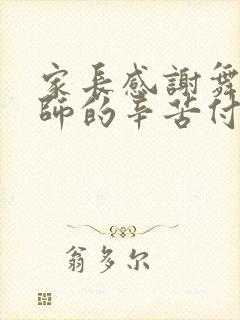 家長感謝舞
師的辛苦付
翁多尔